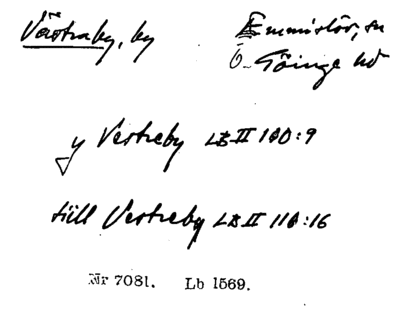 Västraby, by Emmislöv, sn
Ö. Göinge hd
y Vestreby LB II 100:9
till Vestreby LB II 110:16
Nr 7081. Lb 1569.